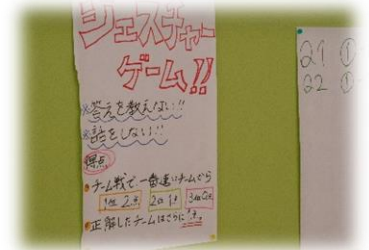 ジェスチャー
ゲーム!!
※答えを教えない!!
※話をしない!!
得点
チーム戦で、一番速いチームから
1位 2点 2位 1点
正解したチームはさらに
21 ①
22 ①